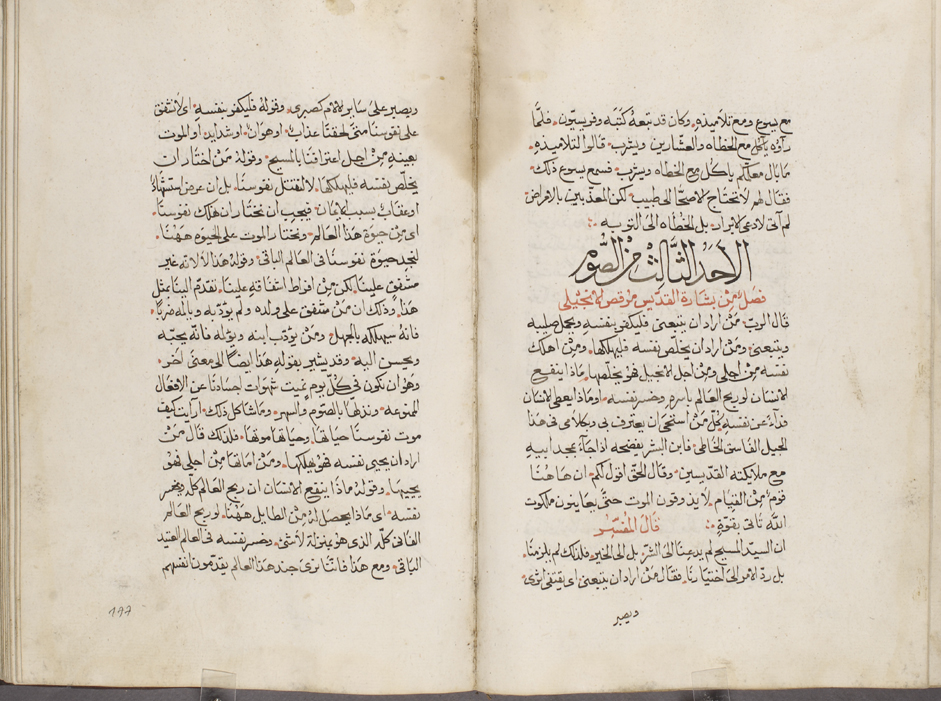 مع يسوع ومع تلاميذه٠ وكان قد تبعهُ كتبَه وفريسيّون٠ فلمَّا
رآوه ياكل مع الخطاه والعشّارين ويشرب٠ قالوا لتلاميذه٠
مَا بَال معلّمكم ياكُل مع الخطاه ويشرب٠ فسمع يسوع ذلك٠
فقال لهم لا تحتاج الاصحّا الى طبيب٠ لكن المعذّبين بالامراض
لم آتى لادعى الابرار٠ بل الخطَاه الى التوبه٠
الاحد الثّالث من الصّوم
فصل من بشارة القدّيس مرقص الانجيلى
قال الربّ٠ مَنْ اراد ان يتبعنى٠ فليكفو بنفسه ويحمل صليبه
ويتبعنى٠ ومَنْ اراد ان يخلّص نفسه فليهلكها٠ ومن اهلك
نفسه من اجلى ومن اجل الانجيل فهو يخلّصها٠ مَاذا ينفع
الانسَان لو ربح العالم باسره وخسر نفسه٠ او مَاذا يعطى الانسَان
فدآءً عن نفسه٠ كلّ مَنْ استحى ان يعترف بى وبكلامى فى هذا
الجيل الفَاسق الخَاطى٠ فابن البشر يفضحه اذا جَآءَ بمجد ابيه
مع ملايكته القدّيسين٠ وقال الحقّ اقول لكم٠ ان هَاهُنَا
قومٌ من القيام٠ لا يذوقون الموت حتّى يعَاينون ملكوت
الله تاتى بقوّةٍ٠
قَالَ المُفسِّر
ان السيّد المسيح لم يدعينَا الى الشرّ٠ بل الى الخير٠ فلذلك لم يلزمنَا٠
بل ردّ الامر الى اختيَارنَا٠ فقال مَنْ اراد ان يتبعنى اى يقتفى اثرى٠
ويصبر
ويصبر على سَاير الالام كصبرى٠ وقوله فليكفو بنفسه٠ اى لا نشفق
على نفوسنَا متى لحقتنَا عذابَات٠ او هوَان٠ او شدايد٠ او الموت
بعينه من اجل اعترافنَا بالمسيح٠ وقوله مَن اختار ان
يخلّص نفسه فليهلكها٠ لا لنقتل نفوسنَا٠ بل ان عرض استشهَادٌ
او عقَاب بسبب الامَان٠ فيجب ان نختَار ان هلك نفوسنَا٠
اى من حيوة هذا العالم٠ ونختار الموت على الحيوه هَهُنَا٠
لنجد حيوة نفوسنَا فى العَالم البَاقى٠ وقوله هذا لا لانّه غير
مشفق علينَا٠ لكن من افراط اشفَاقه علينَا٠ تقدّم الينَا بمثل
هذا٠ وذلك ان مَنْ شفق على ولده ولم يؤدّبه ويالمه ضربًا٠
فانّه سيهلكه بالجهل٠ ومَنْ يؤدّب ابنه ويؤلمه فانّه يحبّه
ويحسن اليه٠ وقد يشير بقوله هذا ايضًا الى معنى اخر٠
وهو ان نكون فى كلّ يومٍ نميت شهوات اجسَادنَا عن الافعَال
المنوعه٠ ونذلّهَا بالصّوم والسهر٠ ومَا شَاكل ذلك٠ ارايت كيف
موت نفوسنَا حيَاتهَا٠ وحيَاتهَا موتهَا٠ فلذلك قال مَنْ
اراد ان يحيى نفسه فهو يهلكهَا٠ ومَنْ امَاتهَا من اجلى فهو
يحييهَا٠ وقوله مَاذا ينفع الانسَان ان ربح العَالم كلّه ويخسر
نفسه٠ اى مَاذا يحصل له من الطايل هَهُنَا٠ لو ربح العَالم
الفَانى كلّه الذى هو بمنزلة لا شئ٠ وخسر نفسه فى العَالم العتيد
البَاقى٠ ومع هذا فانّنَا نرى جند هذا العالم يقدّمون انفسهم
١٩٧